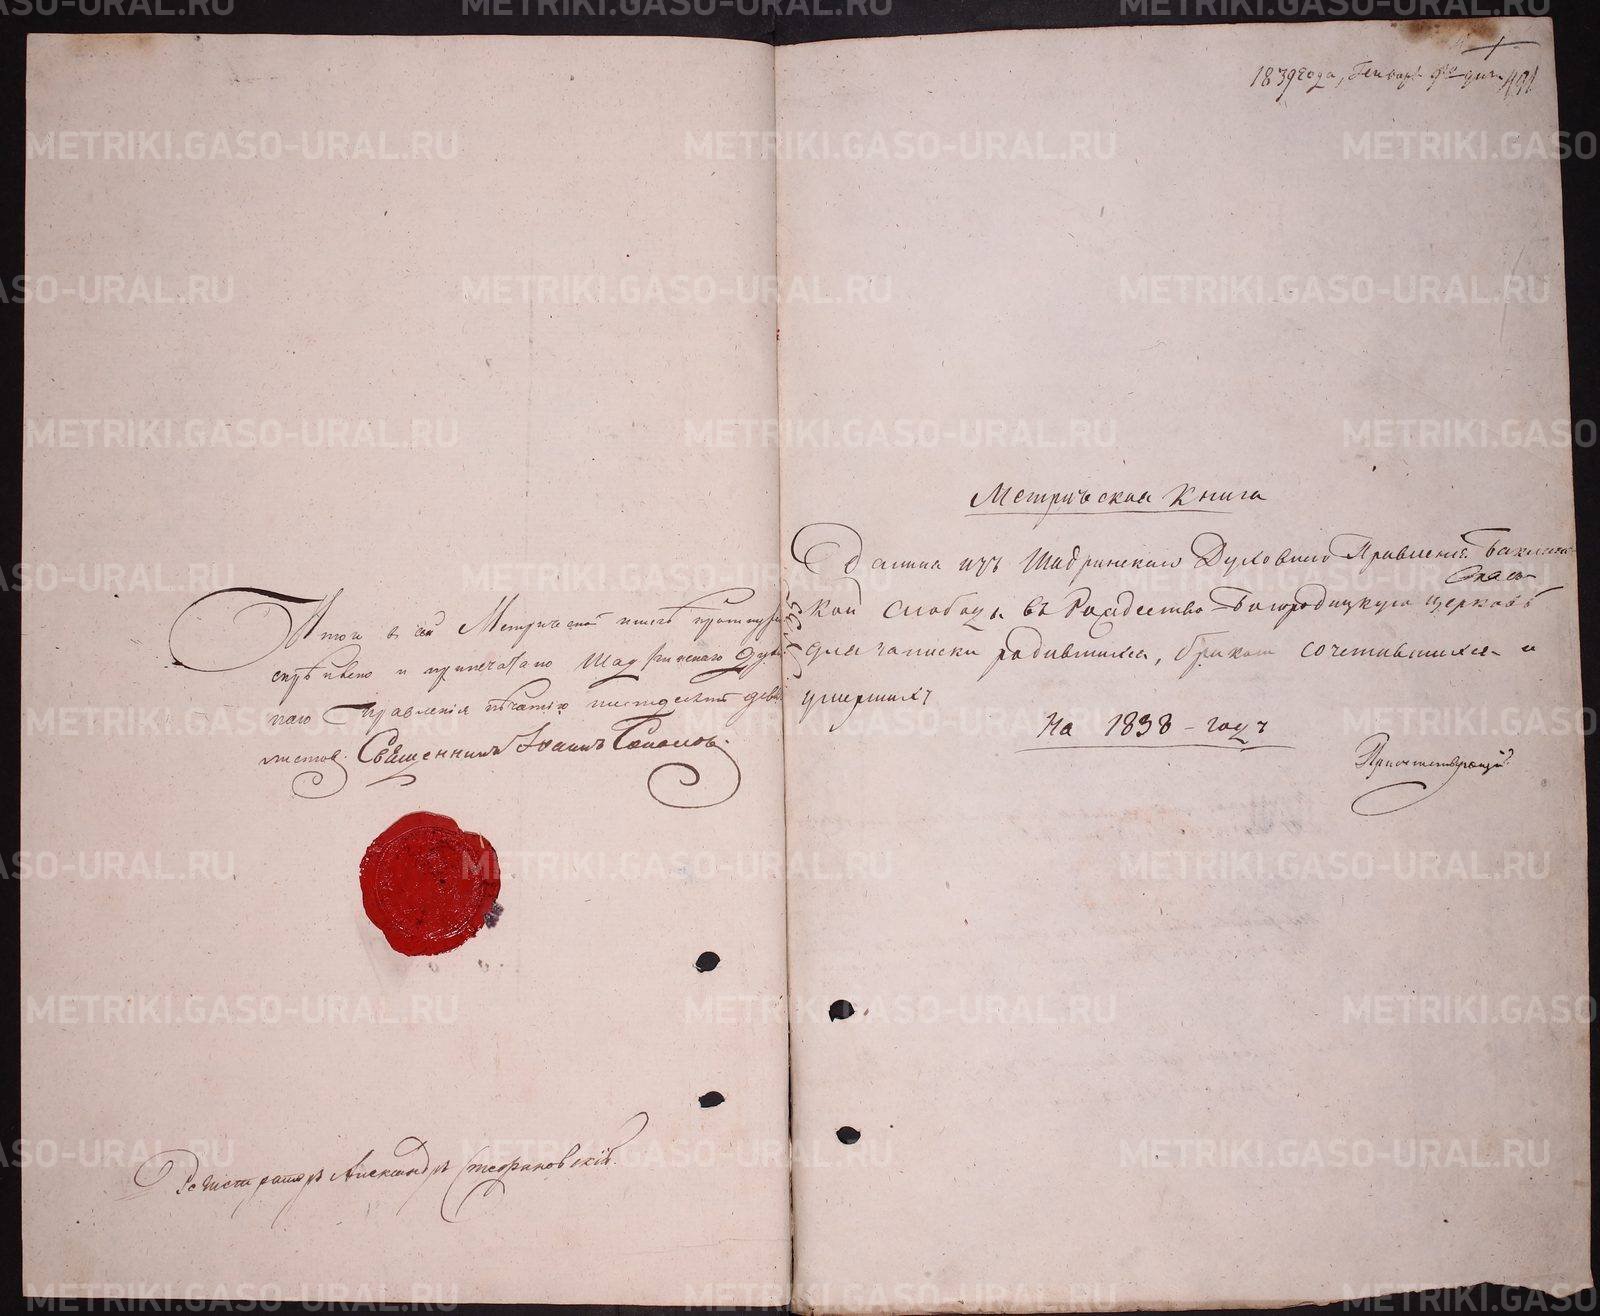 Итого в сей Метрической книге пронумеровано
скреплено и припечатано Шадринскаго Духов
наго Правления печатию шестьдесят девять
листов. Священникъ Iоаннъ
Регистраторъ Александръ Стефановскiй.
1839 года, Генваря дня 491
Метрическая Книга
Данная изъ Шадринскаго Духовнаго Правления
кой слободы въ Рождество-Богородицкую церковь
для записки родившихся, бракомъ сочетавшихся и
умершихъ
На 1838 - годъ
Присутствующiй
METRIKI.GASO-URAL.RU